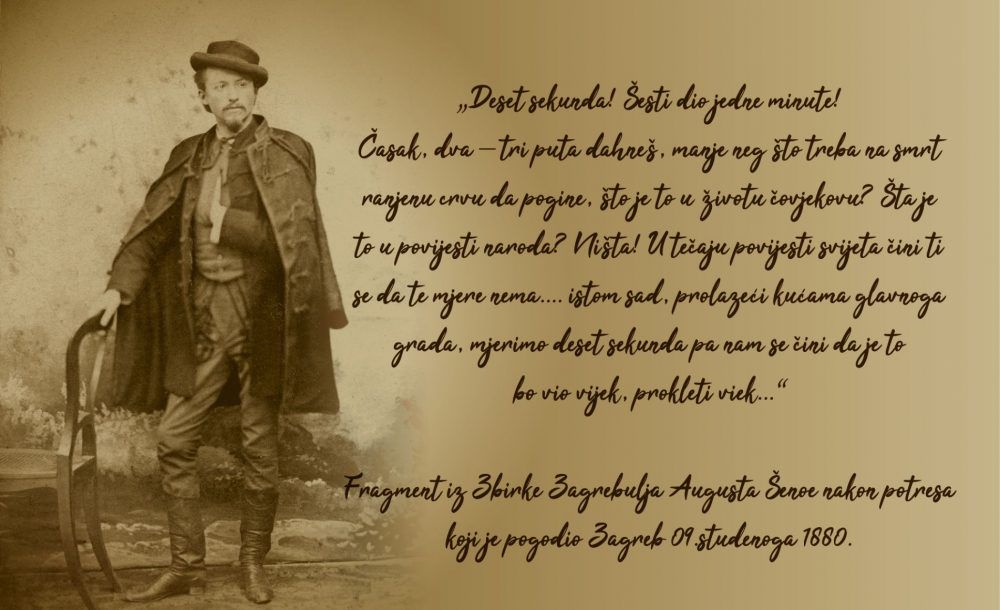 „Deset sekunda! Šesti dio jedne minute!
Časak, dva – tri puta dahneš, manje neg što treba na smrt
ranjenu crvu da pogine, što je to u životu čovjekovu? Šta je
to u povijesti naroda? Ništa! U tečaju povijesti svijeta čini ti
se da te mjere nema.... istom sad, prolazeći kućama glavnoga
grada, mjerimo deset sekunda pa nam se čini da je to
bo vio vijek, prokleti viek...“
Fragment iz Zbirke Zagrebulja Augusta Šenoe nakon potresa
koji je pogodio Zagreb 09.studenoga 1880.